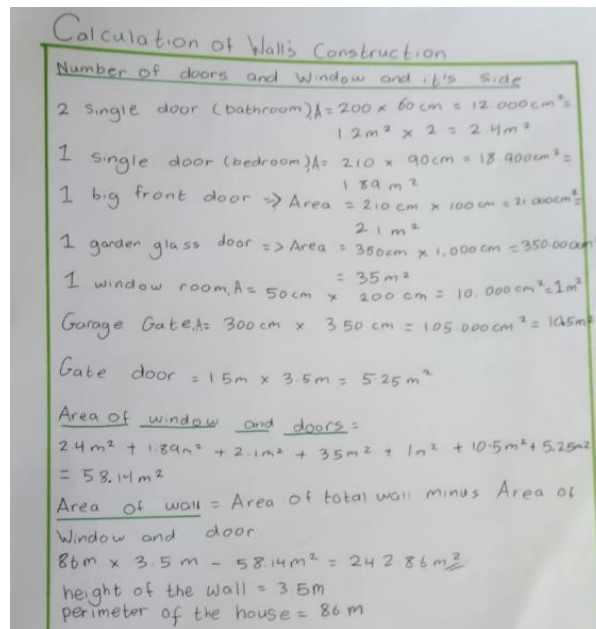 Calculation of Wall's Construction
Number of doors and window and it's side
2 single door (bathroom)A= 200 x 60 cm = 12.000cm²=
1 2 m² x 2 = 2.4m²
1 single door (bedroom)A= 210 x 90cm = 18.900cm²=
1 89 m²
1 big front door => Area = 210 cm x 100 cm = 21.000cm²=
2 1 m²
1 garden glass door => Area = 350cm x 1,000 cm = 350.000cm²
= 35 m²
1 window room, A= 50 cm x 200 cm = 10.000 cm²=1m²
Garage Gate,A= 300 cm x 3 50 cm = 105.000cm² = 10.5m²
Gate door = 1 5m x 3.5m = 5.25 m²
Area of window and doors =
2.4 m² + 1.89m² + 2.1m² + 35m² + 1m² + 10.5m²+ 5.25m2
= 58.14 m²
Area of wall = Area of total wall minus Area of
Window and door
86m x 3.5 m - 58.14m² = 24 2 86 m²
height of the wall = 3 5m
perimeter of the house = 86 m